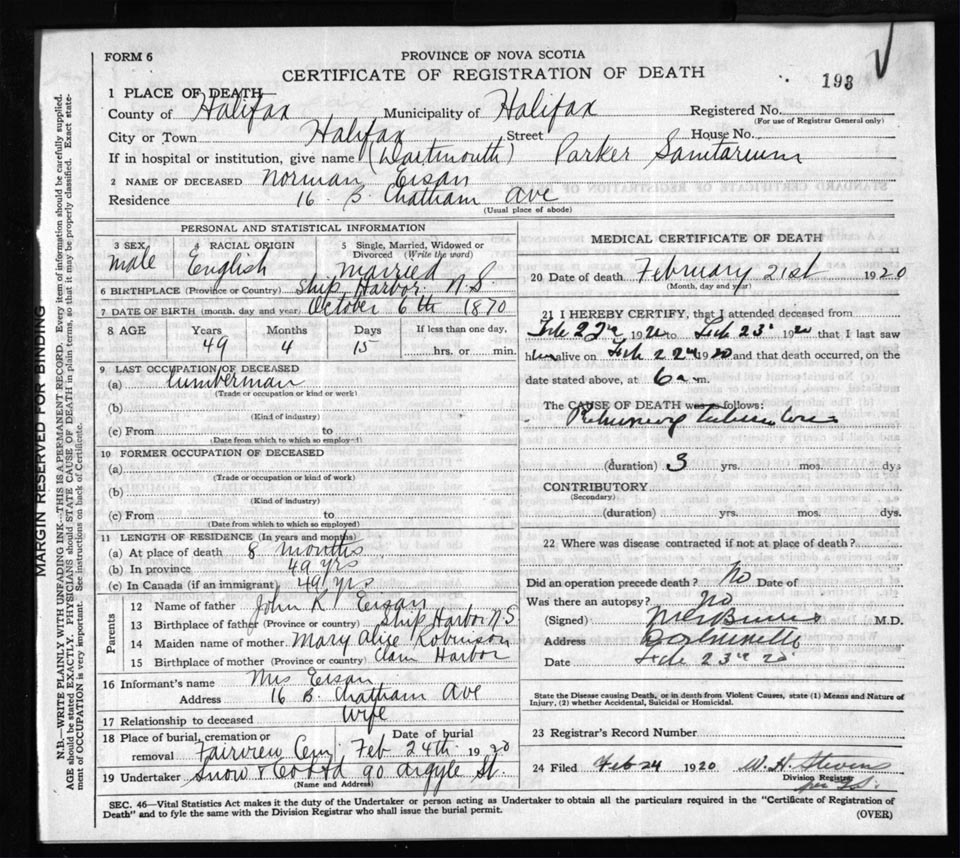 FORM 6
PROVINCE OF NOVA SCOTIA
CERTIFICATE OF REGISTRATION OF DEATH
193
1 PLACE OF DEATH
County of Halifax Municipality of Halifax Registered No.
(For use of Registrar General only)
City or Town Halifax Street House No.
If in hospital or institution, give name (Dartmouth) Parker Sanitarium
2 NAME OF DECEASED Norman Eisan
Residence 16 B. Chatham Ave
(Usual place of abode)
PERSONAL AND STATISTICAL INFORMATION
3 SEX 4 RACIAL ORIGIN 5 Single, Married, Widowed or Divorced (Write the word)
Male English Married
6 BIRTHPLACE (Province or Country) Ship Harbor N.S.
7 DATE OF BIRTH (month, day and year) October 6th 1870
8 AGE Years Months Days If less than one day,
49 4 15 hrs. or min.
9 LAST OCCUPATION OF DECEASED
(a) Lumberman
(Trade or occupation or kind or work)
(b)
(Kind of industry)
(c) From to
(Date from which to which so employed)
10 FORMER OCCUPATION OF DECEASED
(a)
(Trade or occupation or kind of work)
(b)
(Kind of industry)
(c) From to
(Date from which to which so employed)
11 LENGTH OF RESIDENCE (In years and months)
(a) At place of death 8 months
(b) In province 49 yrs
(c) In Canada (if an immigrant) 49 yrs
Parents
12 Name of father John K Eisan
13 Birthplace of father (Province or country) Ship Harbor N S
14 Maiden name of mother Mary Alice Robinson
15 Birthplace of mother (Province or country) Clam Harbor
16 Informant's name Mrs Eisan
Address 16 B. Chatham Ave
17 Relationship to deceased Wife
18 Place of burial, cremation or removal Date of burial
Fairview Cem Feb 24th 1920
19 Undertaker Snow & Co Ltd 90 Argyle St.
(Name and Address)
MEDICAL CERTIFICATE OF DEATH
20 Date of death February 21st 1920
(Month, day and year)
21 I HEREBY CERTIFY, that I attended deceased from
Feb 22nd 1920 to Feb 23rd 1920 that I last saw
him alive on Feb 22nd 1920 and that death occurred, on the
date stated above, at 6 a m.
The CAUSE OF DEATH was as follows:
Pulmonary tuberculosis
(duration) 3 yrs. mos. dys
CONTRIBUTORY
(Secondary)
(duration) yrs. mos. dys.
22 Where was disease contracted if not at place of death?
Did an operation precede death? No Date of
Was there an autopsy? No
(Signed) M.D.
Address
Date Feb 23rd 20
State the Disease causing Death, or in death from Violent Causes, state (1) Means and Nature of
Injury, (2) whether Accidental, Suicidal or Homicidal.
23 Registrar's Record Number
24 Filed Feb 24 1920 W. H. Stevens
Division Registrar
SEC. 46—Vital Statistics Act makes it the duty of the Undertaker or person acting as Undertaker to obtain all the particulars required in the "Certificate of Registration of
Death" and to fyle the same with the Division Registrar who shall issue the burial permit.
(OVER)
MARGIN RESERVED FOR BINDING
N.B.—WRITE PLAINLY WITH UNFADING INK—THIS IS A PERMANENT RECORD. Every item of information should be carefully supplied.
AGE should be stated EXACTLY. PHYSICIANS should STATE CAUSE OF DEATH in plain terms, so that it may be properly classified. Exact state-
ment of OCCUPATION is very important. See instructions on back of Certificate.